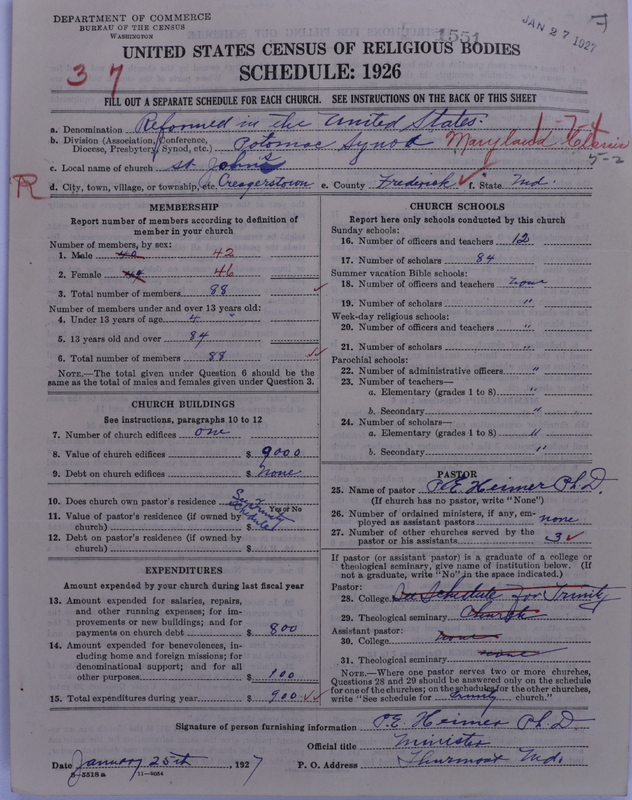 DEPARTMENT OF COMMERCE
BUREAU OF THE CENSUS
WASHINGTON
JAN 27 1927
1551
UNITED STATES CENSUS OF RELIGIOUS BODIES
SCHEDULE: 1926
37
FILL OUT A SEPARATE SCHEDULE FOR EACH CHURCH. SEE INSTRUCTIONS ON THE BACK OF THIS SHEET
a. Denomination Reformed in the United States.
1-7-4
b. Division (Association, Conference, Diocese, Presbytery, Synod, etc.) Potomac Synod Maryland Classis
5-2
c. Local name of church St. John's
R
d. City, town, village, or township, etc. Creagerstown e. County Frederick f. State Md.
MEMBERSHIP
Report number of members according to definition of
member in your church
Number of members, by sex:
1. Male 40 42
2. Female 48 46
3. Total number of members 88
Number of members under and over 13 years old:
4. Under 13 years of age 4
5. 13 years old and over 84
6. Total number of members 88
NOTE.—The total given under Question 6 should be
same as the total of males and females given under Question 3.
CHURCH BUILDINGS
See instructions, paragraphs 10 to 12
7. Number of church edifices one
8. Value of church edifices $ 9000
9. Debt on church edifices $ none
10. Does church own pastor's residence See Trinity Schedule
Yes or No
11. Value of pastor's residence (if owned by
church) $
12. Debt on pastor's residence (if owned by
church) $
EXPENDITURES
Amount expended by your church during last fiscal year
13. Amount expended for salaries, repairs,
and other running expenses; for im-
provements or new buildings; and for
payments on church debt $ 800
14. Amount expended for benevolences, in-
cluding home and foreign missions; for
denominational support; and for all
other purposes $ 100
15. Total expenditures during year $ 900
CHURCH SCHOOLS
Report here only schools conducted by this church
Sunday schools:
16. Number of officers and teachers 12
17. Number of scholars 84
Summer vacation Bible schools:
18. Number of officers and teachers none
19. Number of scholars "
Week-day religious schools:
20. Number of officers and teachers "
21. Number of scholars "
Parochial schools:
22. Number of administrative officers "
23. Number of teachers—
a. Elementary (grades 1 to 8) "
b. Secondary "
24. Number of scholars—
a. Elementary (grades 1 to 8) "
b. Secondary "
PASTOR
25. Name of pastor P.E. Heimer Ph.D.
(If church has no pastor, write "None")
26. Number of ordained ministers, if any, em-
ployed as assistant pastors none
27. Number of other churches served by the
pastor or his assistants 3
If pastor (or assistant pastor) is a graduate of a college or
theological seminary, give name of institution below. (If
not a graduate, write "No" in the space indicated.)
Pastor:
28. College See Schedule for Trinity
29. Theological seminary Church
Assistant pastor:
30. College none
31. Theological seminary none
NOTE.—Where one pastor serves two or more churches,
Questions 28 and 29 should be answered only on the schedule
for one of the churches; on the schedules for the other churches,
write "See schedule for Trinity church."
Signature of person furnishing information P.E. Heimer Ph.D.
Official title Minister
Date January 25th, 1927 P. O. Address Thurmont Md.
8-5518 a 11-9054